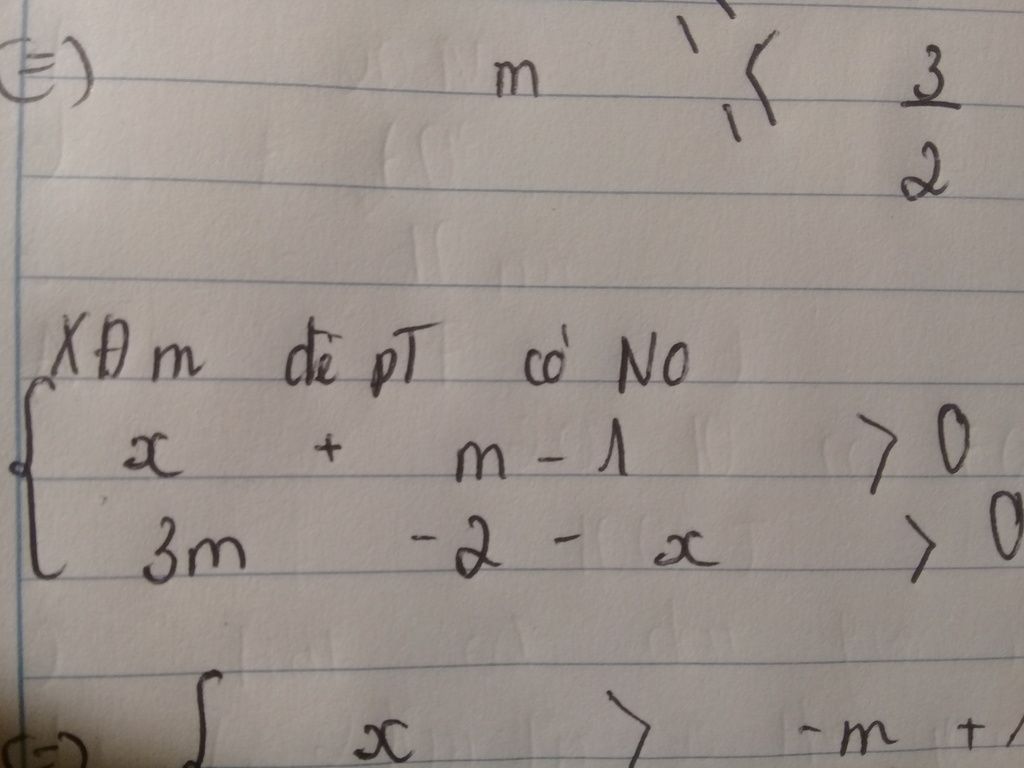 (=) m < 3/2
XĐ m để pT có NO
{ x + m - 1 > 0
3m - 2 - x > 0
(=) { x > - m + 1